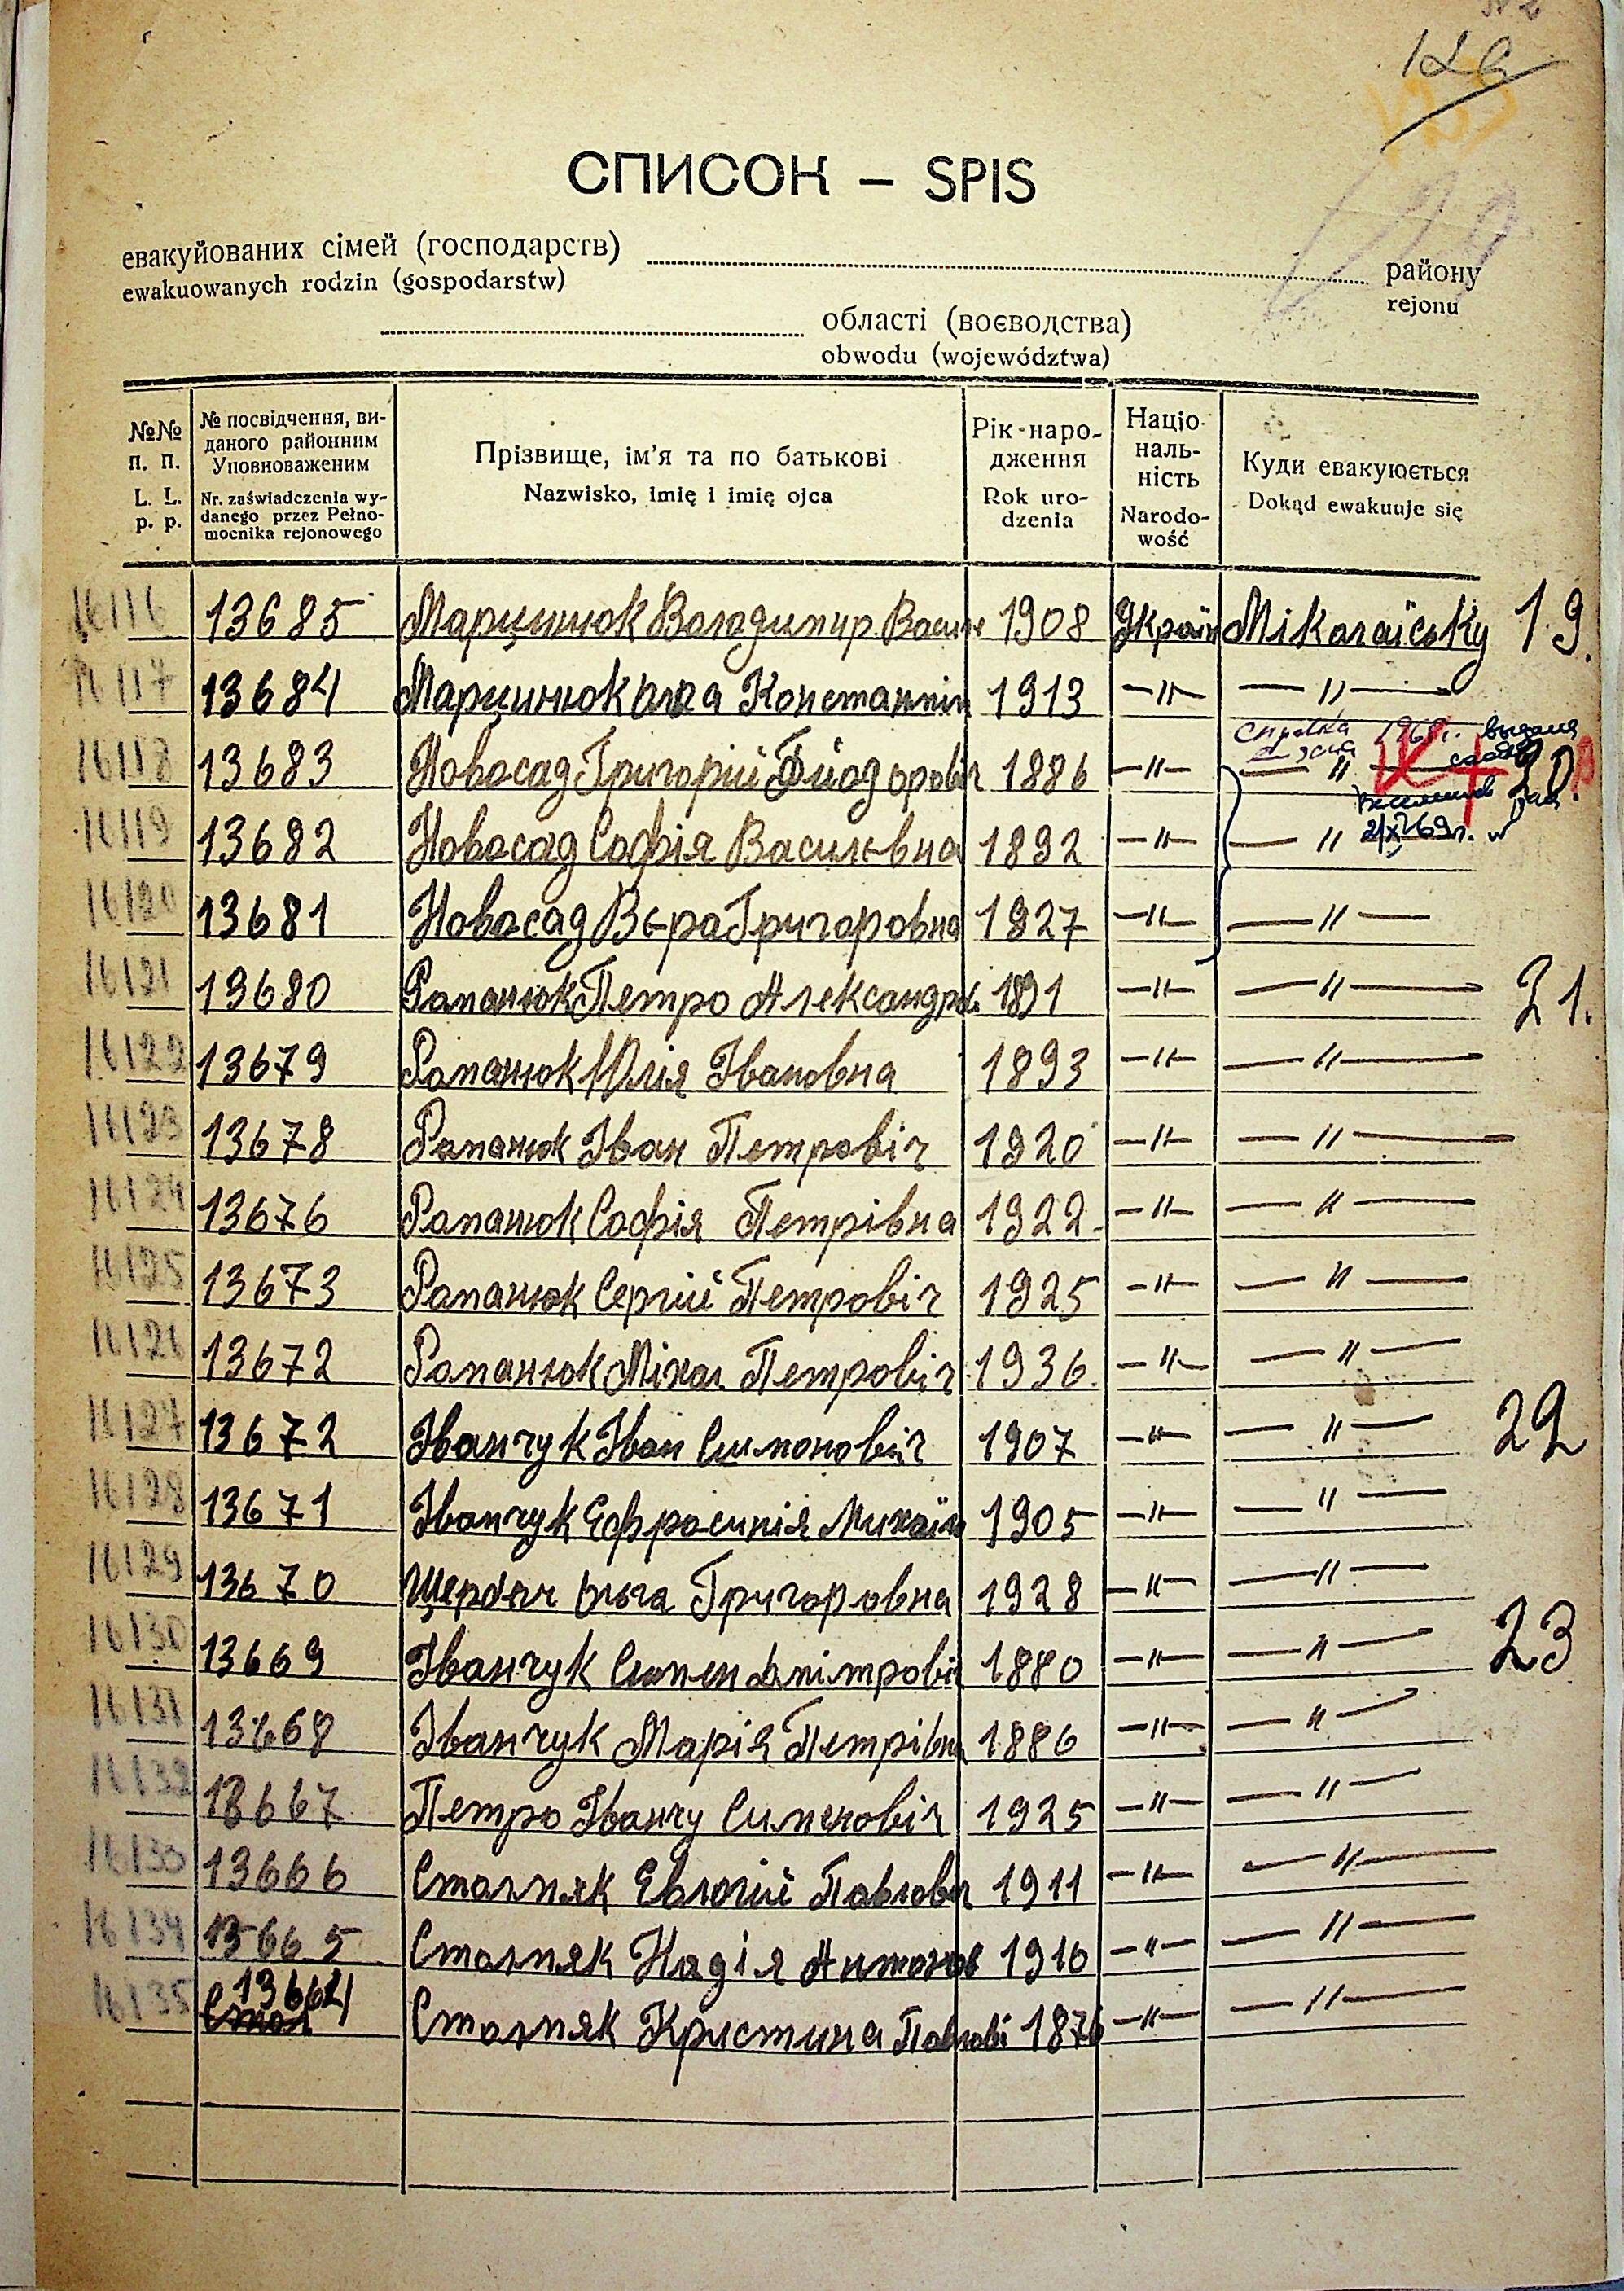 129
СПИСОК – SPIS
евакуйованих сімей (господарств) району
ewakuowanych rodzin (gospodarstw) rejonu
області (воєводства)
obwodu (województwa)
№№ п. п. L. L. p. p.
№ посвідчення, виданого районним Уповноваженим Nr. zaświadczenia wydanego przez Pełnomocnika rejonowego
Прізвище, ім'я та по батькові Nazwisko, imię i imię ojca
Рік народження Rok urodzenia
Національність Narodowość
Куди евакуюється Dokąd ewakuuje się
16116 13685 Марцинюк Володимир Васил 1908 Україн Міколаїську 19.
16117 13684 Марцинюк Ольга Константін 1913 —"— —"—
Справка 1968г. выдана
16118 13683 Новосад Григорій Фйодоровіч 1886 —"— —"— 20.
21/X 69г.
16119 13682 Новосад Софія Васильвна 1892 —"— —"—
16120 13681 Новосад Вєра Григоровна 1927 —"— —"—
16121 13680 Рапанюк Петро Александров 1891 —"— —"— 21.
16122 13679 Рапанюк Юлія Івановна 1893 —"— —"—
16123 13678 Рапанюк Іван Петровіч 1920 —"— —"—
16124 13676 Рапанюк Софія Петрівна 1922 —"— —"—
16125 13673 Рапанюк Сергій Петровіч 1925 —"— —"—
16126 13672 Рапанюк Міхал Петровіч 1936 —"— —"—
16127 13672 Іванчук Іван Симоновіч 1907 —"— —"— 22
16128 13671 Іванчук Ефросинія Михаїл 1905 —"— —"—
16129 13670 Щербач Ольга Григоровна 1928 —"— —"—
16130 13669 Іванчук Симен Дмітровіч 1880 —"— —"— 23
16131 13668 Іванчук Марія Петрівна 1886 —"— —"—
16132 13667 Петро Іванчу Сименовіч 1925 —"— —"—
16133 13666 Столпяк Евлогій Павлович 1911 —"— —"—
16134 13665 Столпяк Надія Антонов 1910 —"— —"—
16135 13664 Столпяк Кристина Павлові 1876 —"— —"—